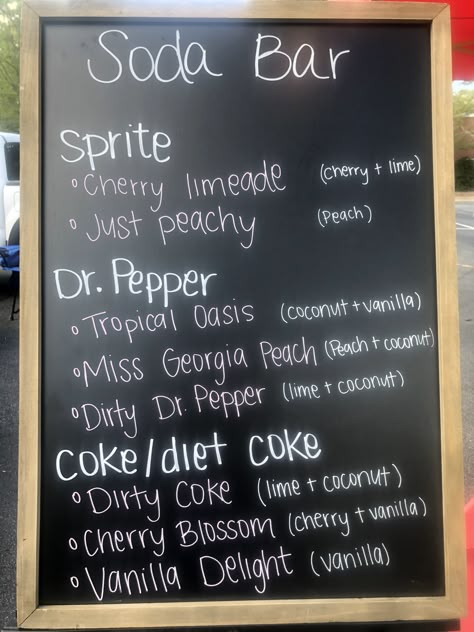 Soda Bar
Sprite
◦ Cherry limeade (cherry + lime)
◦ Just peachy (Peach)
Dr. Pepper
◦ Tropical Oasis (coconut + vanilla)
◦ Miss Georgia Peach (Peach + coconut)
◦ Dirty Dr. Pepper (lime + coconut)
Coke/diet coke
◦ Dirty Coke (lime + coconut)
◦ Cherry Blossom (cherry + vanilla)
◦ Vanilla Delight (vanilla)